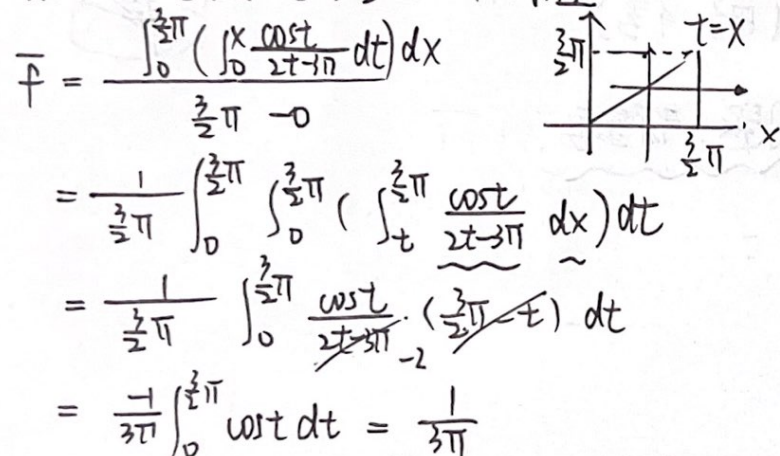 f̄ = ∫₀^{3/2 π} ( ∫₀^x cost/(2t-3π) dt ) dx / (3/2 π - 0)
3/2 π
t=x
x
3/2 π
= 1/(3/2 π) ∫₀^{3/2 π} ∫₀^{3/2 π} ( ∫_t^{3/2 π} cost/(2t-3π) dx ) dt
= 1/(3/2 π) ∫₀^{3/2 π} cost/(2t-3π) · (3/2 π - t) dt
-2
= -1/(3π) ∫₀^{3/2 π} cost dt = 1/(3π)